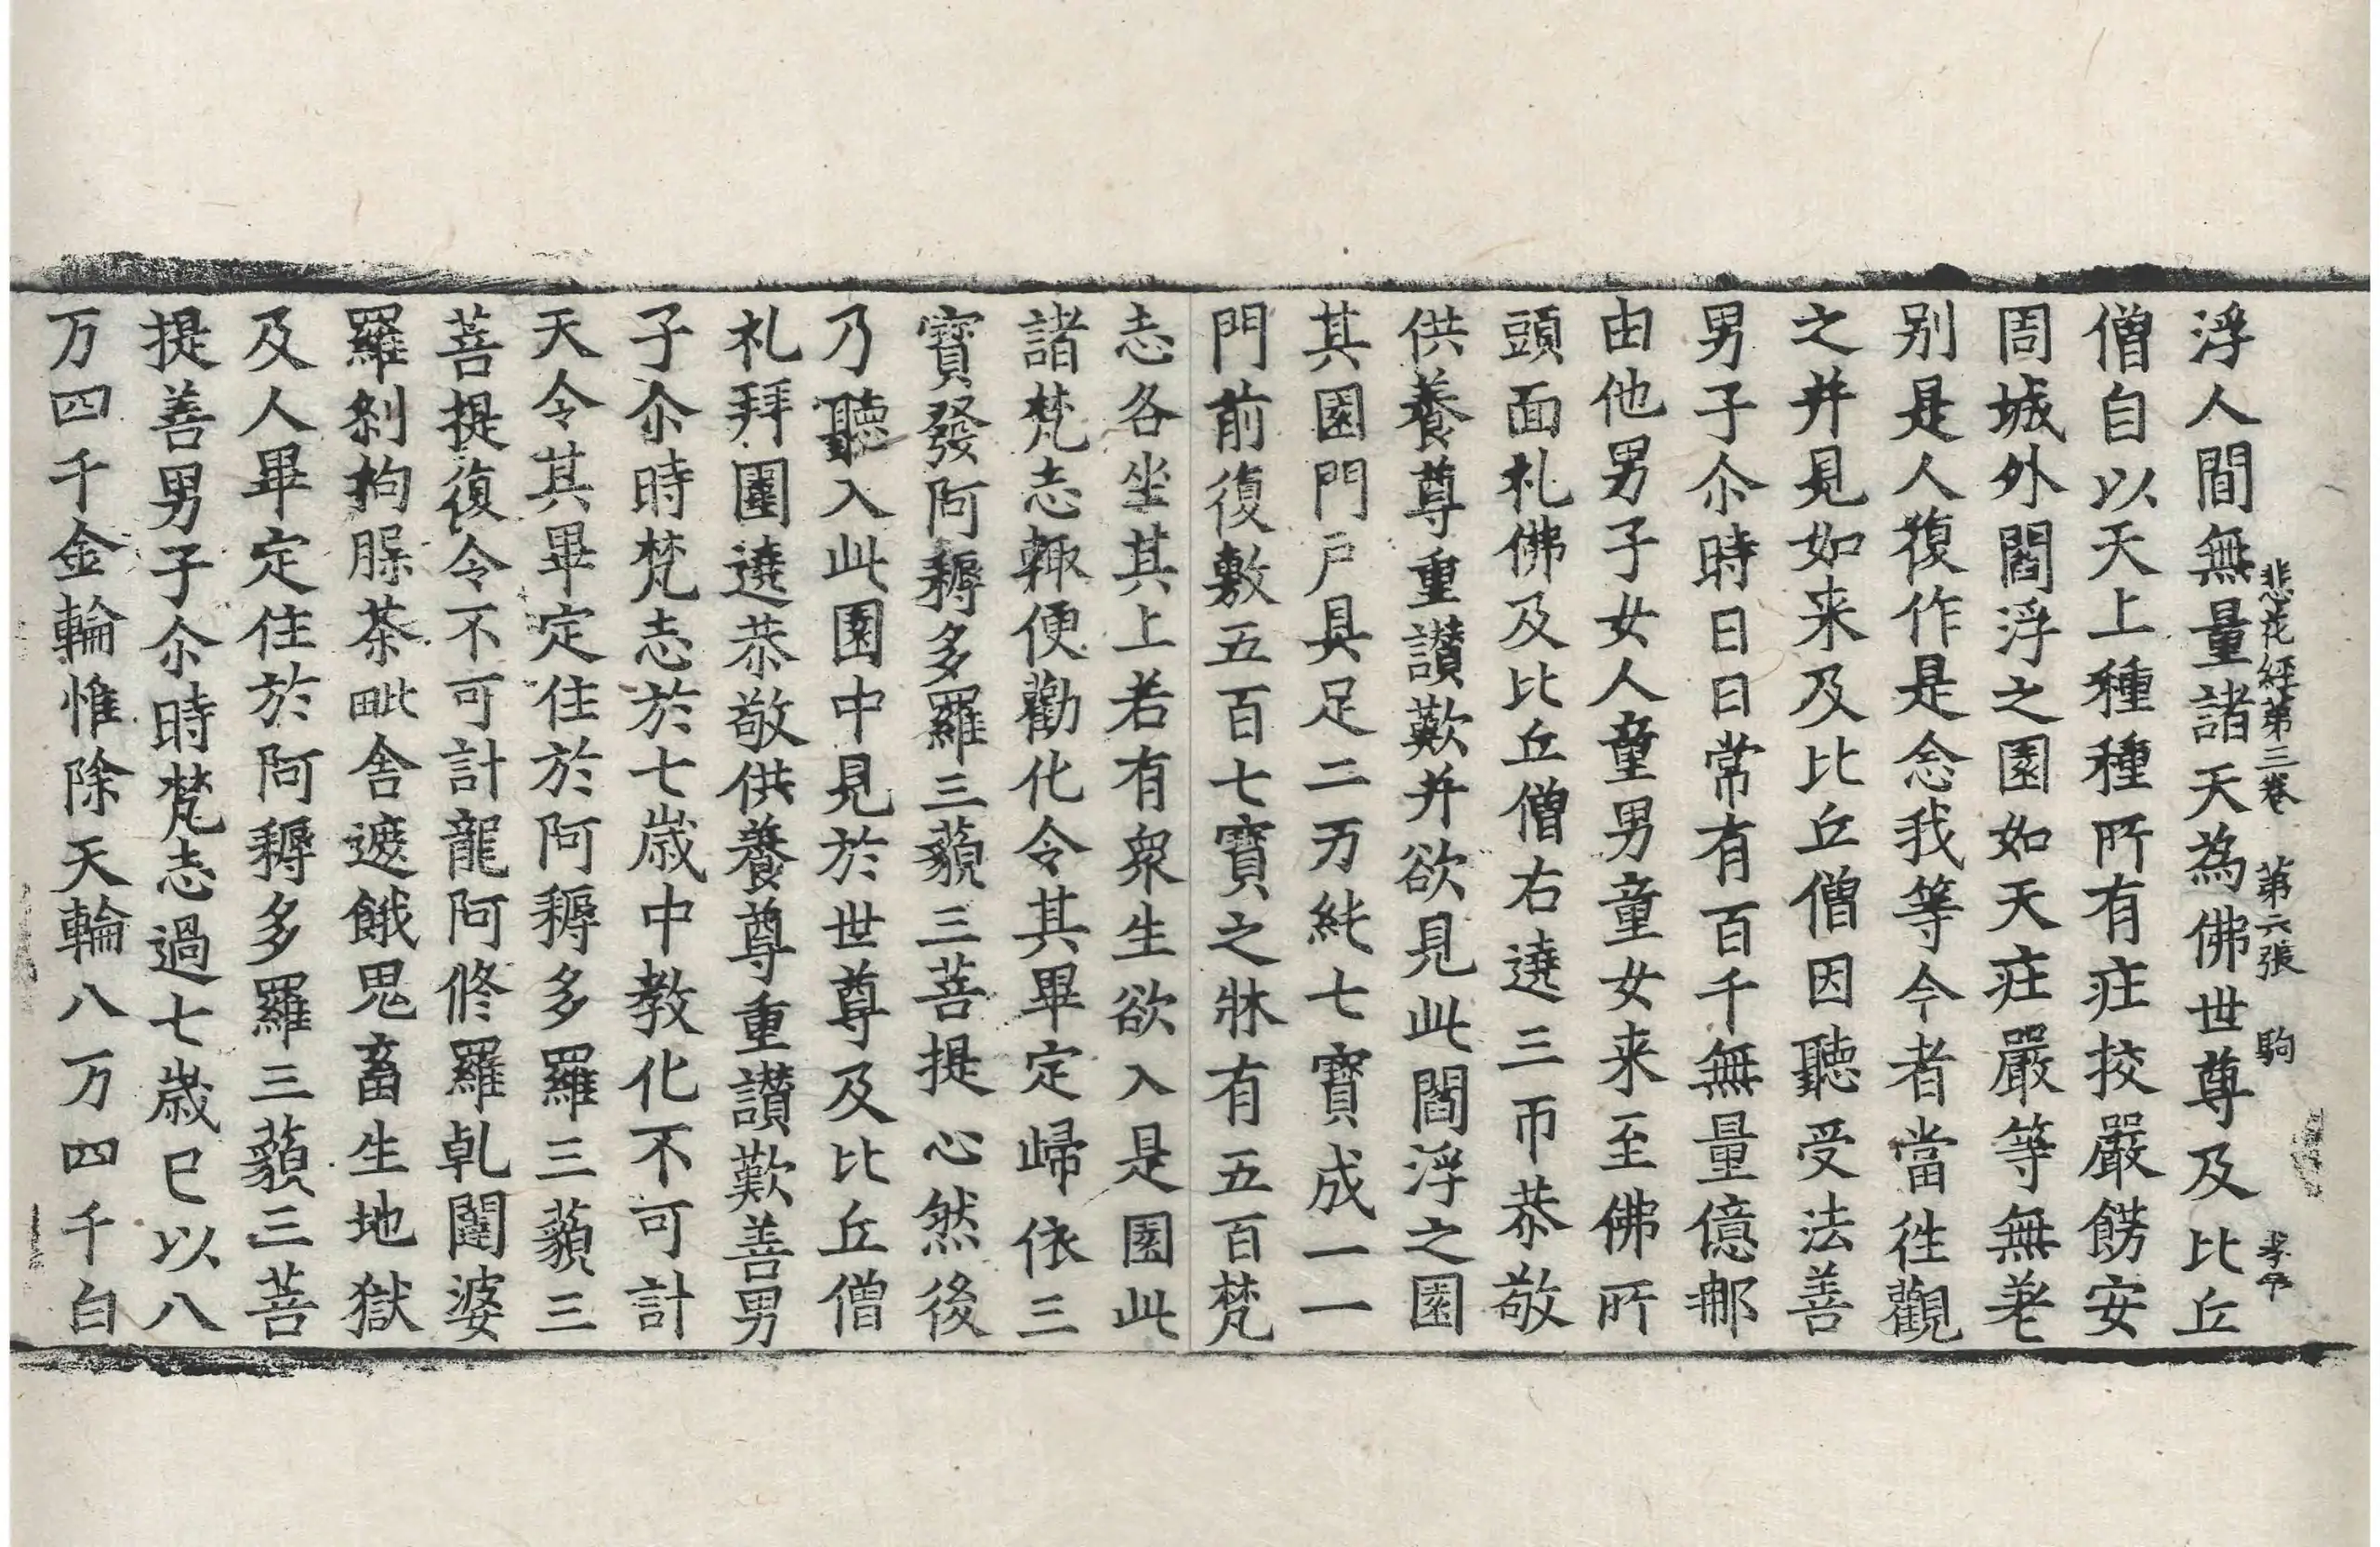 悲花経苐三卷 苐六張 駒
浮人間無量諸天為佛世尊及比丘
僧自以天上種種所有疘挍嚴餝安
周城外閻浮之園如天疘嚴等無差
别是人復作是念我等今者當徃觀
之并見如来及比丘僧因聽受法善
男子尒時日日常有百千無量億那
由他男子女人童男童女来至佛所
頭面礼佛及比丘僧右遶三帀恭敬
供養尊重讃歎并欲見此閻浮之園
其園門戸具足二万純七寶成一一
門前復敷五百七寶之牀有五百梵
志各坐其上若有衆生欲入是園此
諸梵志輙便勸化令其畢定歸依三
寶發阿耨多羅三藐三菩提心然後
乃聽入此園中見於世尊及比丘僧
礼拜圍遶恭敬供養尊重讃歎善男
子尒時梵志於七歳中教化不可計
天令其畢定住於阿耨多羅三藐三
菩提復令不可計龍阿修羅乹闥婆
羅剎拘䏶茶毗舎遮餓鬼畜生地獄
及人畢定住於阿耨多羅三藐三菩
提善男子尒時梵志過七歳已以八
万四千金輪惟除天輪八万四千白